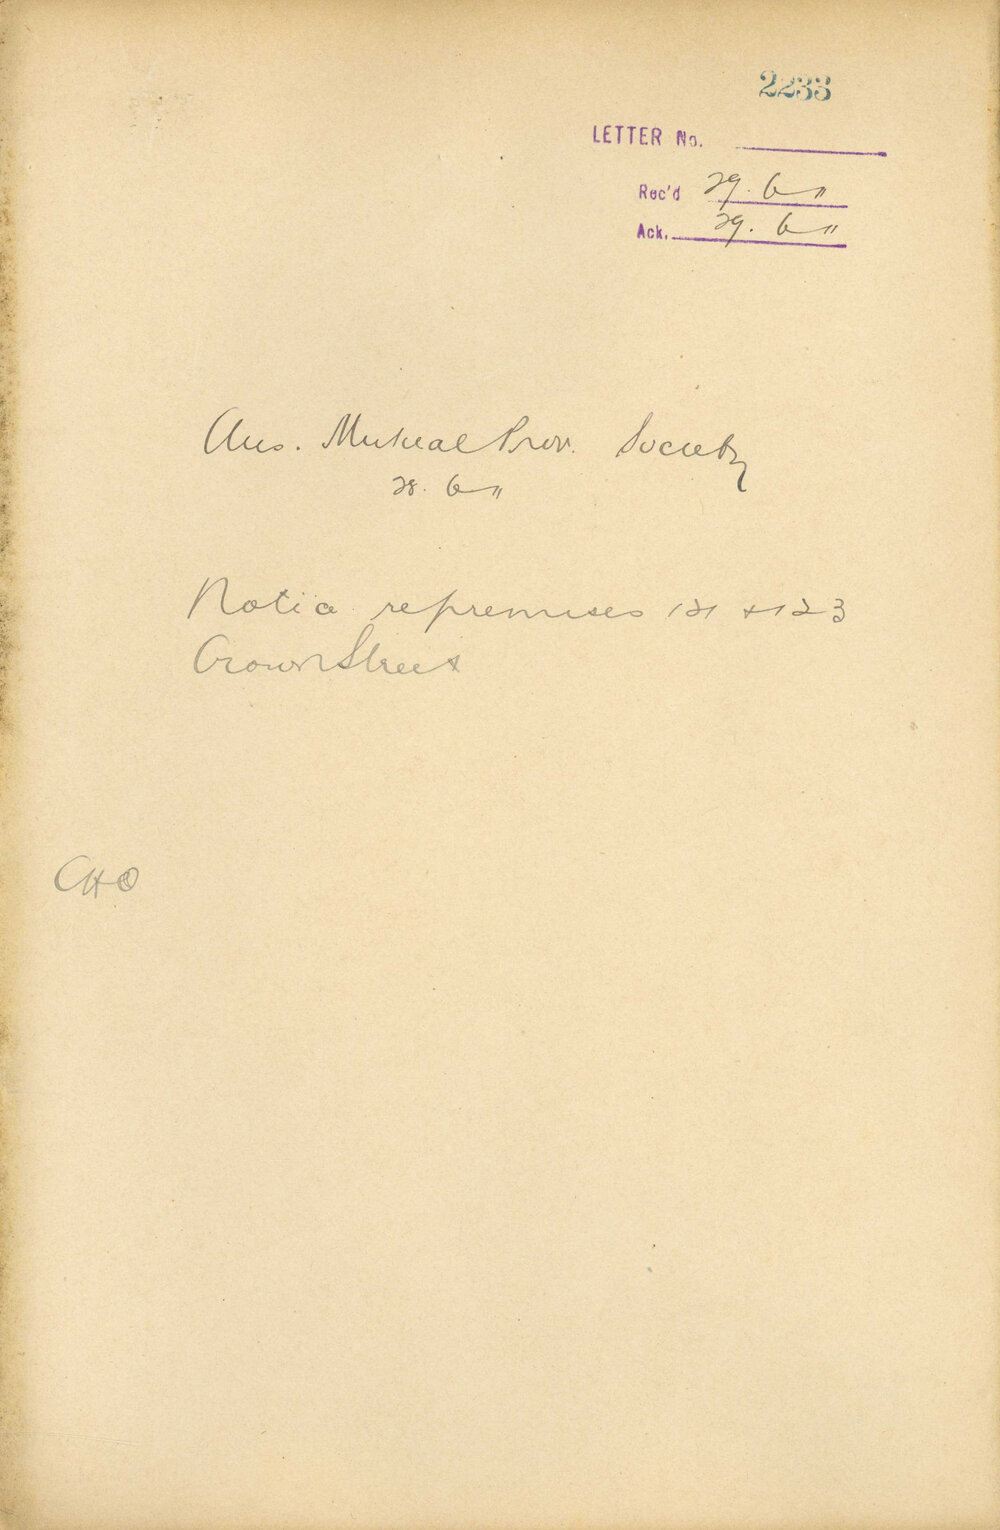 2233
LETTER No.
Rec'd 29. 6 11
Ack. 29. 6 11
Aus. Mutual Prov. Society
28. 6 11
Notice re premises 121 + 123
Crown Street
CHO